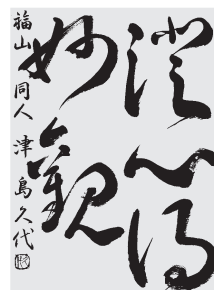 澄心得
妙觀
福山 同人 津島久代